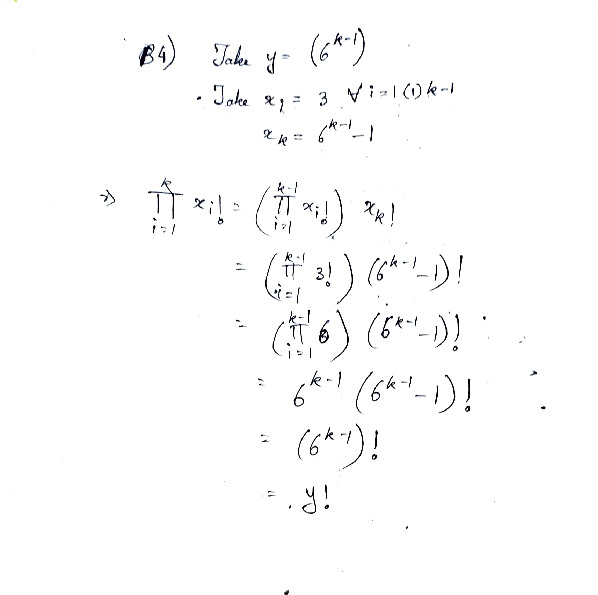 B4) Take y = (6^{k-1})
• Take x_i = 3 ∀ i = 1(1)k-1
x_k = 6^{k-1} - 1
⇒ ∏_{i=1}^{k} x_i! = (∏_{i=1}^{k-1} x_i!) x_k!
= (∏_{i=1}^{k-1} 3!) (6^{k-1} - 1)!
= (∏_{i=1}^{k-1} 6) (6^{k-1} - 1)!
= 6^{k-1} (6^{k-1} - 1)!
= (6^{k-1})!
= y!